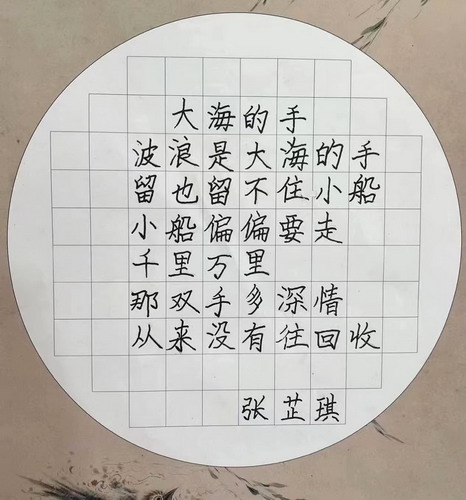 大海的手
波浪是大海的手
留也留不住小船
小船偏偏要走
千里万里
那双手多深情
从来没有往回收
张芷琪